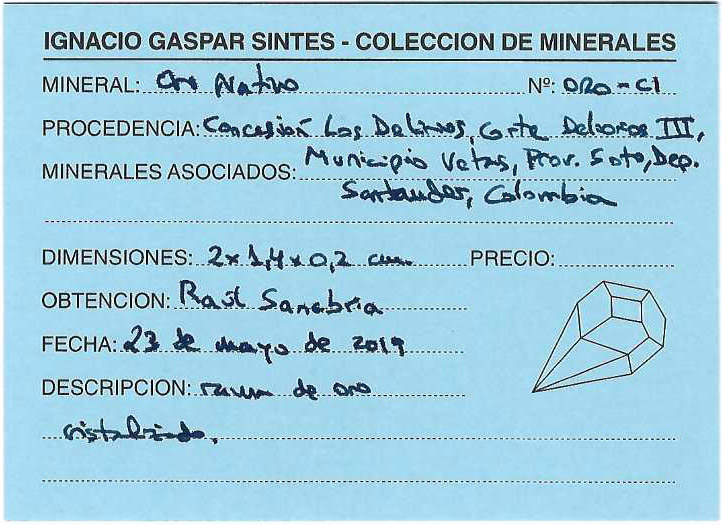 IGNACIO GASPAR SINTES - COLECCION DE MINERALES
MINERAL: Oro Nativo Nº: ORO-C1
PROCEDENCIA: Concesión Los Delirios, Corte Dolores III,
MINERALES ASOCIADOS: Municipio Vetas, Prov. Soto, Dep.
Santander, Colombia
DIMENSIONES: 2x1,4x0,2 cm. PRECIO:
OBTENCION: Raúl Sanabria
FECHA: 23 de mayo de 2019
DESCRIPCION: de oro
cristalizado.